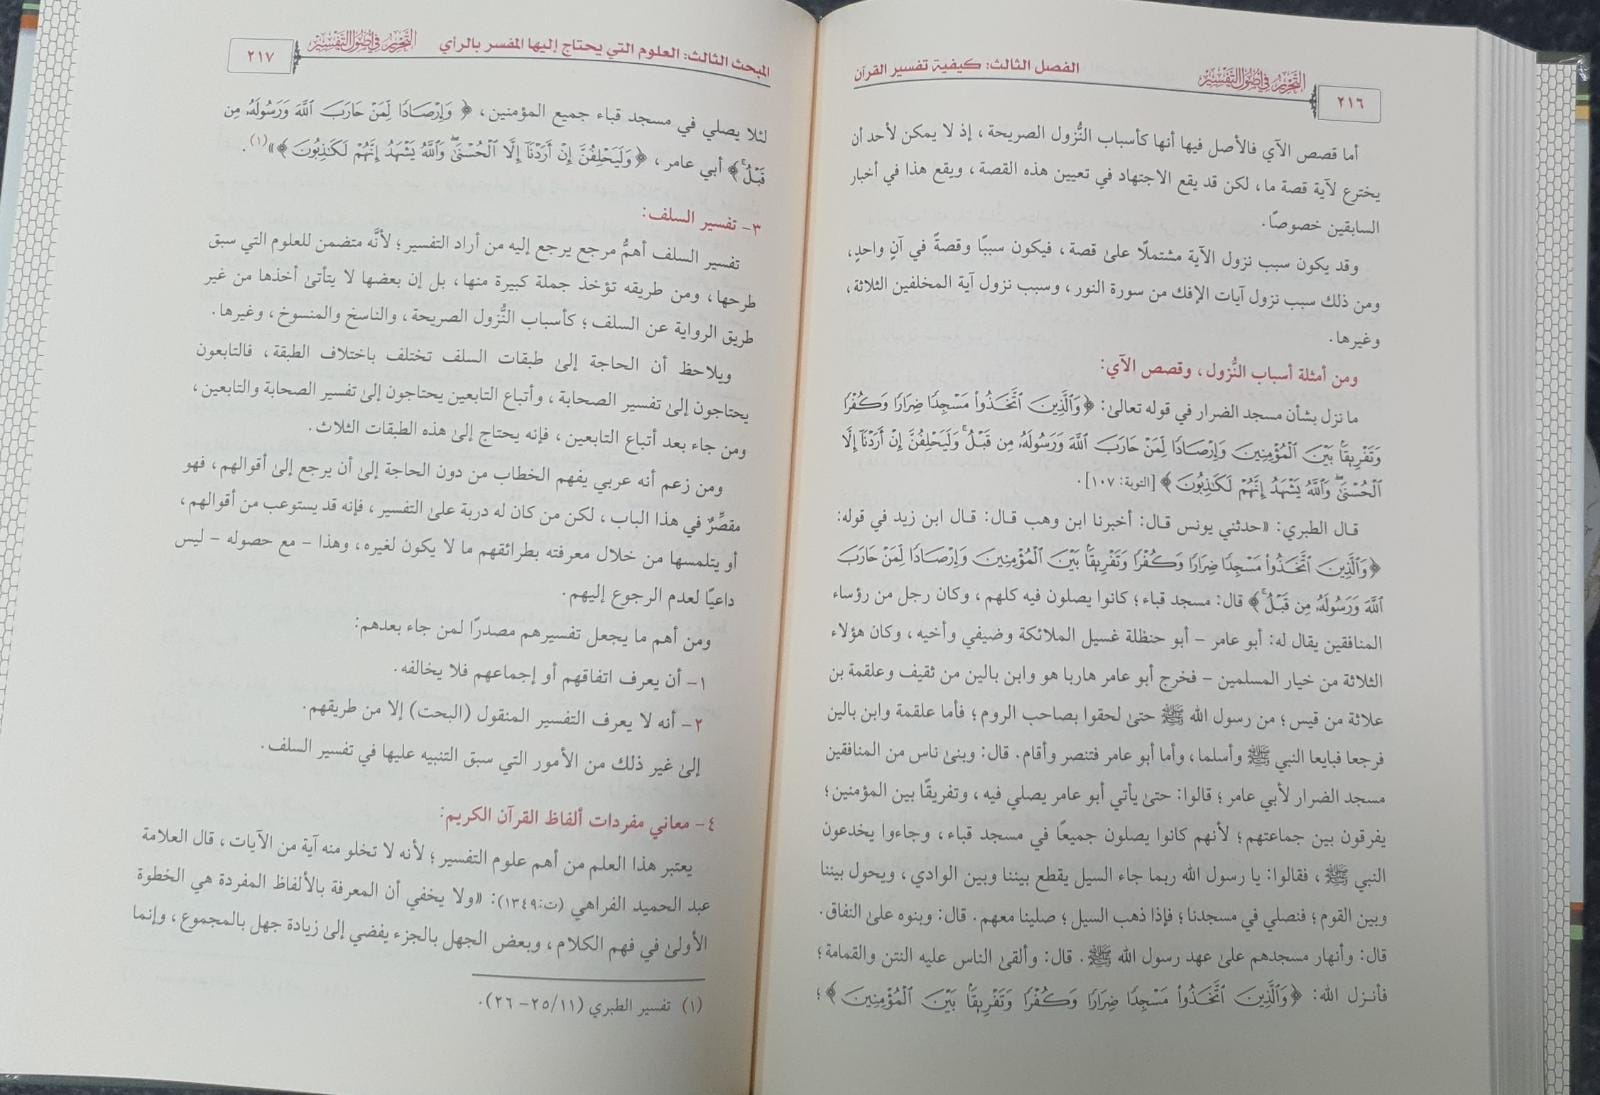 ٢١٦
التحرير في أصول التفسير
الفصل الثالث: كيفية تفسير القرآن
أما قصص الآي فالأصل فيها أنها كأسباب النُّزول الصريحة، إذ لا يمكن لأحد أن
يخترع لآية قصة ما، لكن قد يقع الاجتهاد في تعيين هذه القصة، ويقع هذا في أخبار
السابقين خصوصًا.
وقد يكون سبب نزول الآية مشتملًا علىٰ قصة، فيكون سببًا وقصةً في آنٍ واحدٍ،
ومن ذلك سبب نزول آيات الإفك من سورة النور، وسبب نزول آية المخلفين الثلاثة،
وغيرها.
ومن أمثلة أسباب النُّزول، وقصص الآي:
ما نزل بشأن مسجد الضرار في قوله تعالىٰ: ﴿وَٱلَّذِينَ ٱتَّخَذُوا۟ مَسْجِدًا ضِرَارًا وَكُفْرًا
وَتَفْرِيقًۢا بَيْنَ ٱلْمُؤْمِنِينَ وَإِرْصَادًا لِّمَنْ حَارَبَ ٱللَّهَ وَرَسُولَهُۥ مِن قَبْلُ ۚ وَلَيَحْلِفُنَّ إِنْ أَرَدْنَآ إِلَّا
ٱلْحُسْنَىٰ ۖ وَٱللَّهُ يَشْهَدُ إِنَّهُمْ لَكَٰذِبُونَ﴾ [التوبة: ١٠٧].
قال الطبري: «حدثني يونس قال: أخبرنا ابن وهب قال: قال ابن زيد في قوله:
﴿وَٱلَّذِينَ ٱتَّخَذُوا۟ مَسْجِدًا ضِرَارًا وَكُفْرًا وَتَفْرِيقًۢا بَيْنَ ٱلْمُؤْمِنِينَ وَإِرْصَادًا لِّمَنْ حَارَبَ
ٱللَّهَ وَرَسُولَهُۥ مِن قَبْلُ ۚ﴾ قال: مسجد قباء؛ كانوا يصلون فيه كلهم، وكان رجل من رؤساء
المنافقين يقال له: أبو عامر - أبو حنظلة غسيل الملائكة وضيفي وأخيه، وكان هؤلاء
الثلاثة من خيار المسلمين - فخرج أبو عامر هاربا هو وابن بالين من ثقيف وعلقمة بن
علاثة من قيس؛ من رسول الله ﷺ حتىٰ لحقوا بصاحب الروم؛ فأما علقمة وابن بالين
فرجعا فبايعا النبي ﷺ وأسلما، وأما أبو عامر فتنصر وأقام. قال: وبنىٰ ناس من المنافقين
مسجد الضرار لأبي عامر؛ قالوا: حتىٰ يأتي أبو عامر يصلي فيه، وتفريقًا بين المؤمنين؛
يفرقون بين جماعتهم؛ لأنهم كانوا يصلون جميعًا في مسجد قباء، وجاءوا يخدعون
النبي ﷺ، فقالوا: يا رسول الله ربما جاء السيل يقطع بيننا وبين الوادي، ويحول بيننا
وبين القوم؛ فنصلي في مسجدنا؛ فإذا ذهب السيل؛ صلينا معهم. قال: وبنوه علىٰ النفاق.
قال: وأنهار مسجدهم علىٰ عهد رسول الله ﷺ. قال: وألقىٰ الناس عليه النتن والقمامة؛
فأنزل الله: ﴿وَٱلَّذِينَ ٱتَّخَذُوا۟ مَسْجِدًا ضِرَارًا وَكُفْرًا وَتَفْرِيقًۢا بَيْنَ ٱلْمُؤْمِنِينَ﴾؛
المبحث الثالث: العلوم التي يحتاج إليها المفسر بالرأي
التحرير في أصول التفسير
٢١٧
لئلا يصلي في مسجد قباء جميع المؤمنين، ﴿وَإِرْصَادًا لِّمَنْ حَارَبَ ٱللَّهَ وَرَسُولَهُۥ مِن
قَبْلُ ۚ﴾ أبي عامر، ﴿وَلَيَحْلِفُنَّ إِنْ أَرَدْنَآ إِلَّا ٱلْحُسْنَىٰ ۖ وَٱللَّهُ يَشْهَدُ إِنَّهُمْ لَكَٰذِبُونَ﴾»(١).
٣- تفسير السلف:
تفسير السلف أهمُّ مرجع يرجع إليه من أراد التفسير؛ لأنَّه متضمن للعلوم التي سبق
طرحها، ومن طريقه تؤخذ جملة كبيرة منها، بل إن بعضها لا يتأتىٰ أخذها من غير
طريق الرواية عن السلف؛ كأسباب النُّزول الصريحة، والناسخ والمنسوخ، وغيرها.
ويلاحظ أن الحاجة إلىٰ طبقات السلف تختلف باختلاف الطبقة، فالتابعون
يحتاجون إلىٰ تفسير الصحابة، وأتباع التابعين يحتاجون إلىٰ تفسير الصحابة والتابعين،
ومن جاء بعد أتباع التابعين، فإنه يحتاج إلىٰ هذه الطبقات الثلاث.
ومن زعم أنه عربي يفهم الخطاب من دون الحاجة إلىٰ أن يرجع إلىٰ أقوالهم، فهو
مقصِّرٌ في هذا الباب، لكن من كان له دربة علىٰ التفسير، فإنه قد يستوعب من أقوالهم،
أو يتلمسها من خلال معرفته بطرائقهم ما لا يكون لغيره، وهذا - مع حصوله - ليس
داعيًا لعدم الرجوع إليهم.
ومن أهم ما يجعل تفسيرهم مصدرًا لمن جاء بعدهم:
١- أن يعرف اتفاقهم أو إجماعهم فلا يخالفه.
٢- أنه لا يعرف التفسير المنقول (البحت) إلا من طريقهم.
إلىٰ غير ذلك من الأمور التي سبق التنبيه عليها في تفسير السلف.
٤- معاني مفردات ألفاظ القرآن الكريم:
يعتبر هذا العلم من أهم علوم التفسير؛ لأنه لا تخلو منه آية من الآيات، قال العلامة
عبد الحميد الفراهي (ت:١٣٤٩): «ولا يخفي أن المعرفة بالألفاظ المفردة هي الخطوة
الأولىٰ في فهم الكلام، وبعض الجهل بالجزء يفضي إلىٰ زيادة جهل بالمجموع، وإنما
(١) تفسير الطبري (١١/ ٢٥- ٢٦).